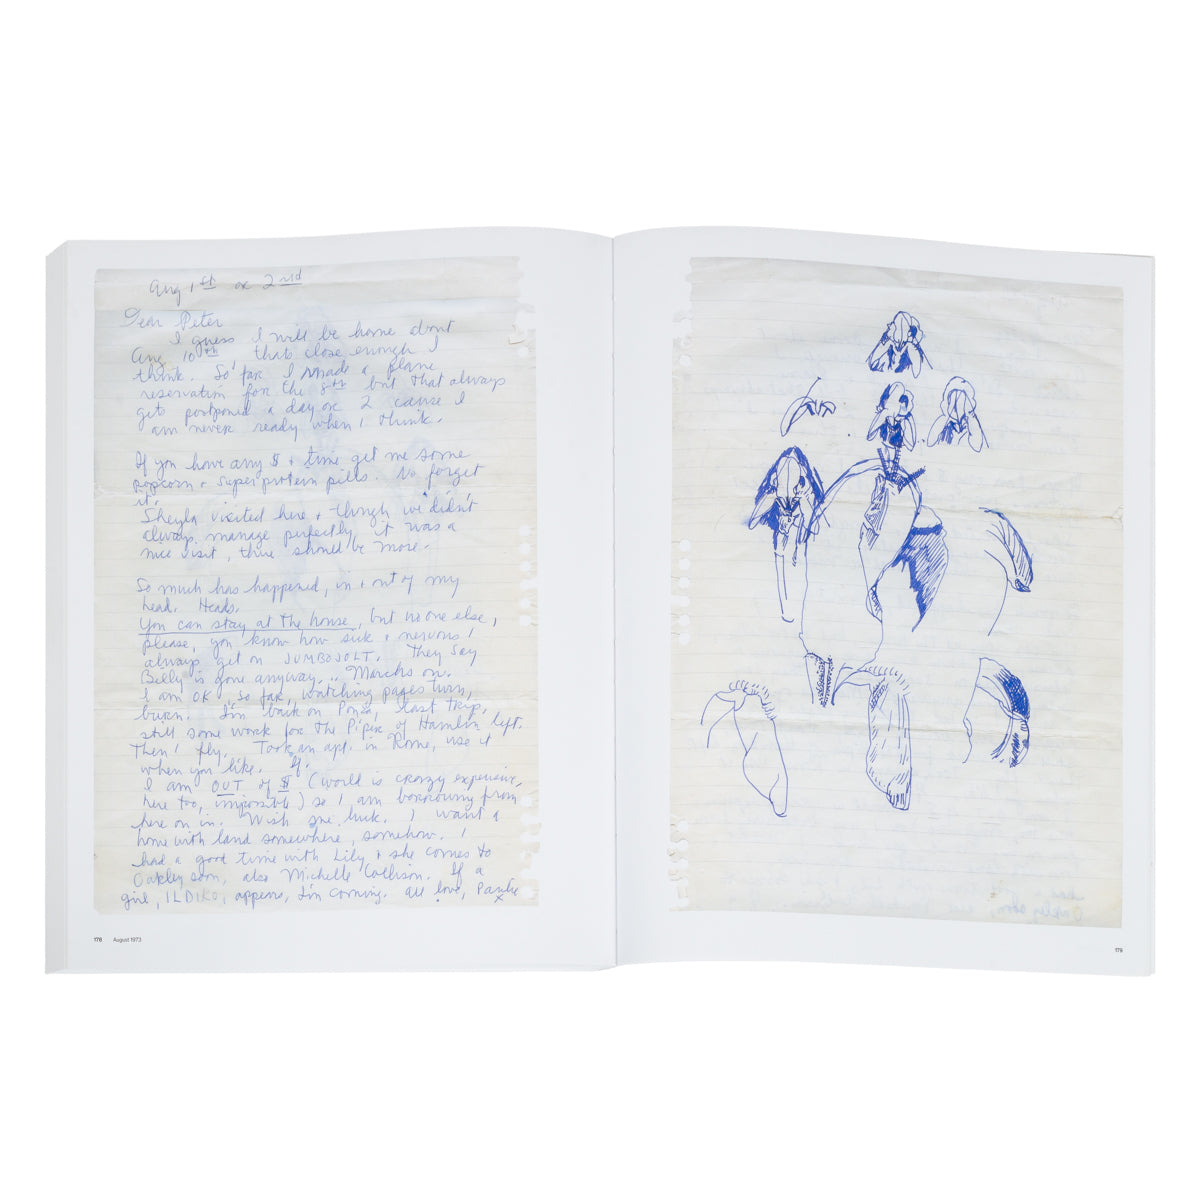 Aug 1st or 2nd
Dear Peter
I guess I will be home abnt
Aug 10th, thats close enough I
think. So far I made a plane
reservation for the 8th but that always
gets postponed a day or 2 cause I
am never ready when I think.
If you have any $ + time get me some
popcorn + super protein pills. No forget
it.
Sheyla visited here + though we didn't
always manage perfectly it was a
nice visit, there should be more.
So much has happened, in + out of my
head. Heads.
You can stay at the house, but no one else,
please, you know how sick + nervous I
always get on JUMBOJOLT. They say
Billy is gone anyway... Marchs on.
I am OK, so far, watching pages turn,
burn. I'm back on Ponza, last trip,
still some work for the Piper of Hamlin left.
Then I fly. Took an apt. in Rome, use it
when you like. If.
I am OUT of $ (world is crazy expensive,
here too, impossible) so I am borrowing from
here on in. Wish me luck. I want a
home with land somewhere, somehow. I
had a good time with Lily + she comes to
Oakley soon, also Michelle Collison. If a
girl, ILDIKO, appears, I'm coming. all love,
178 August 1973
179